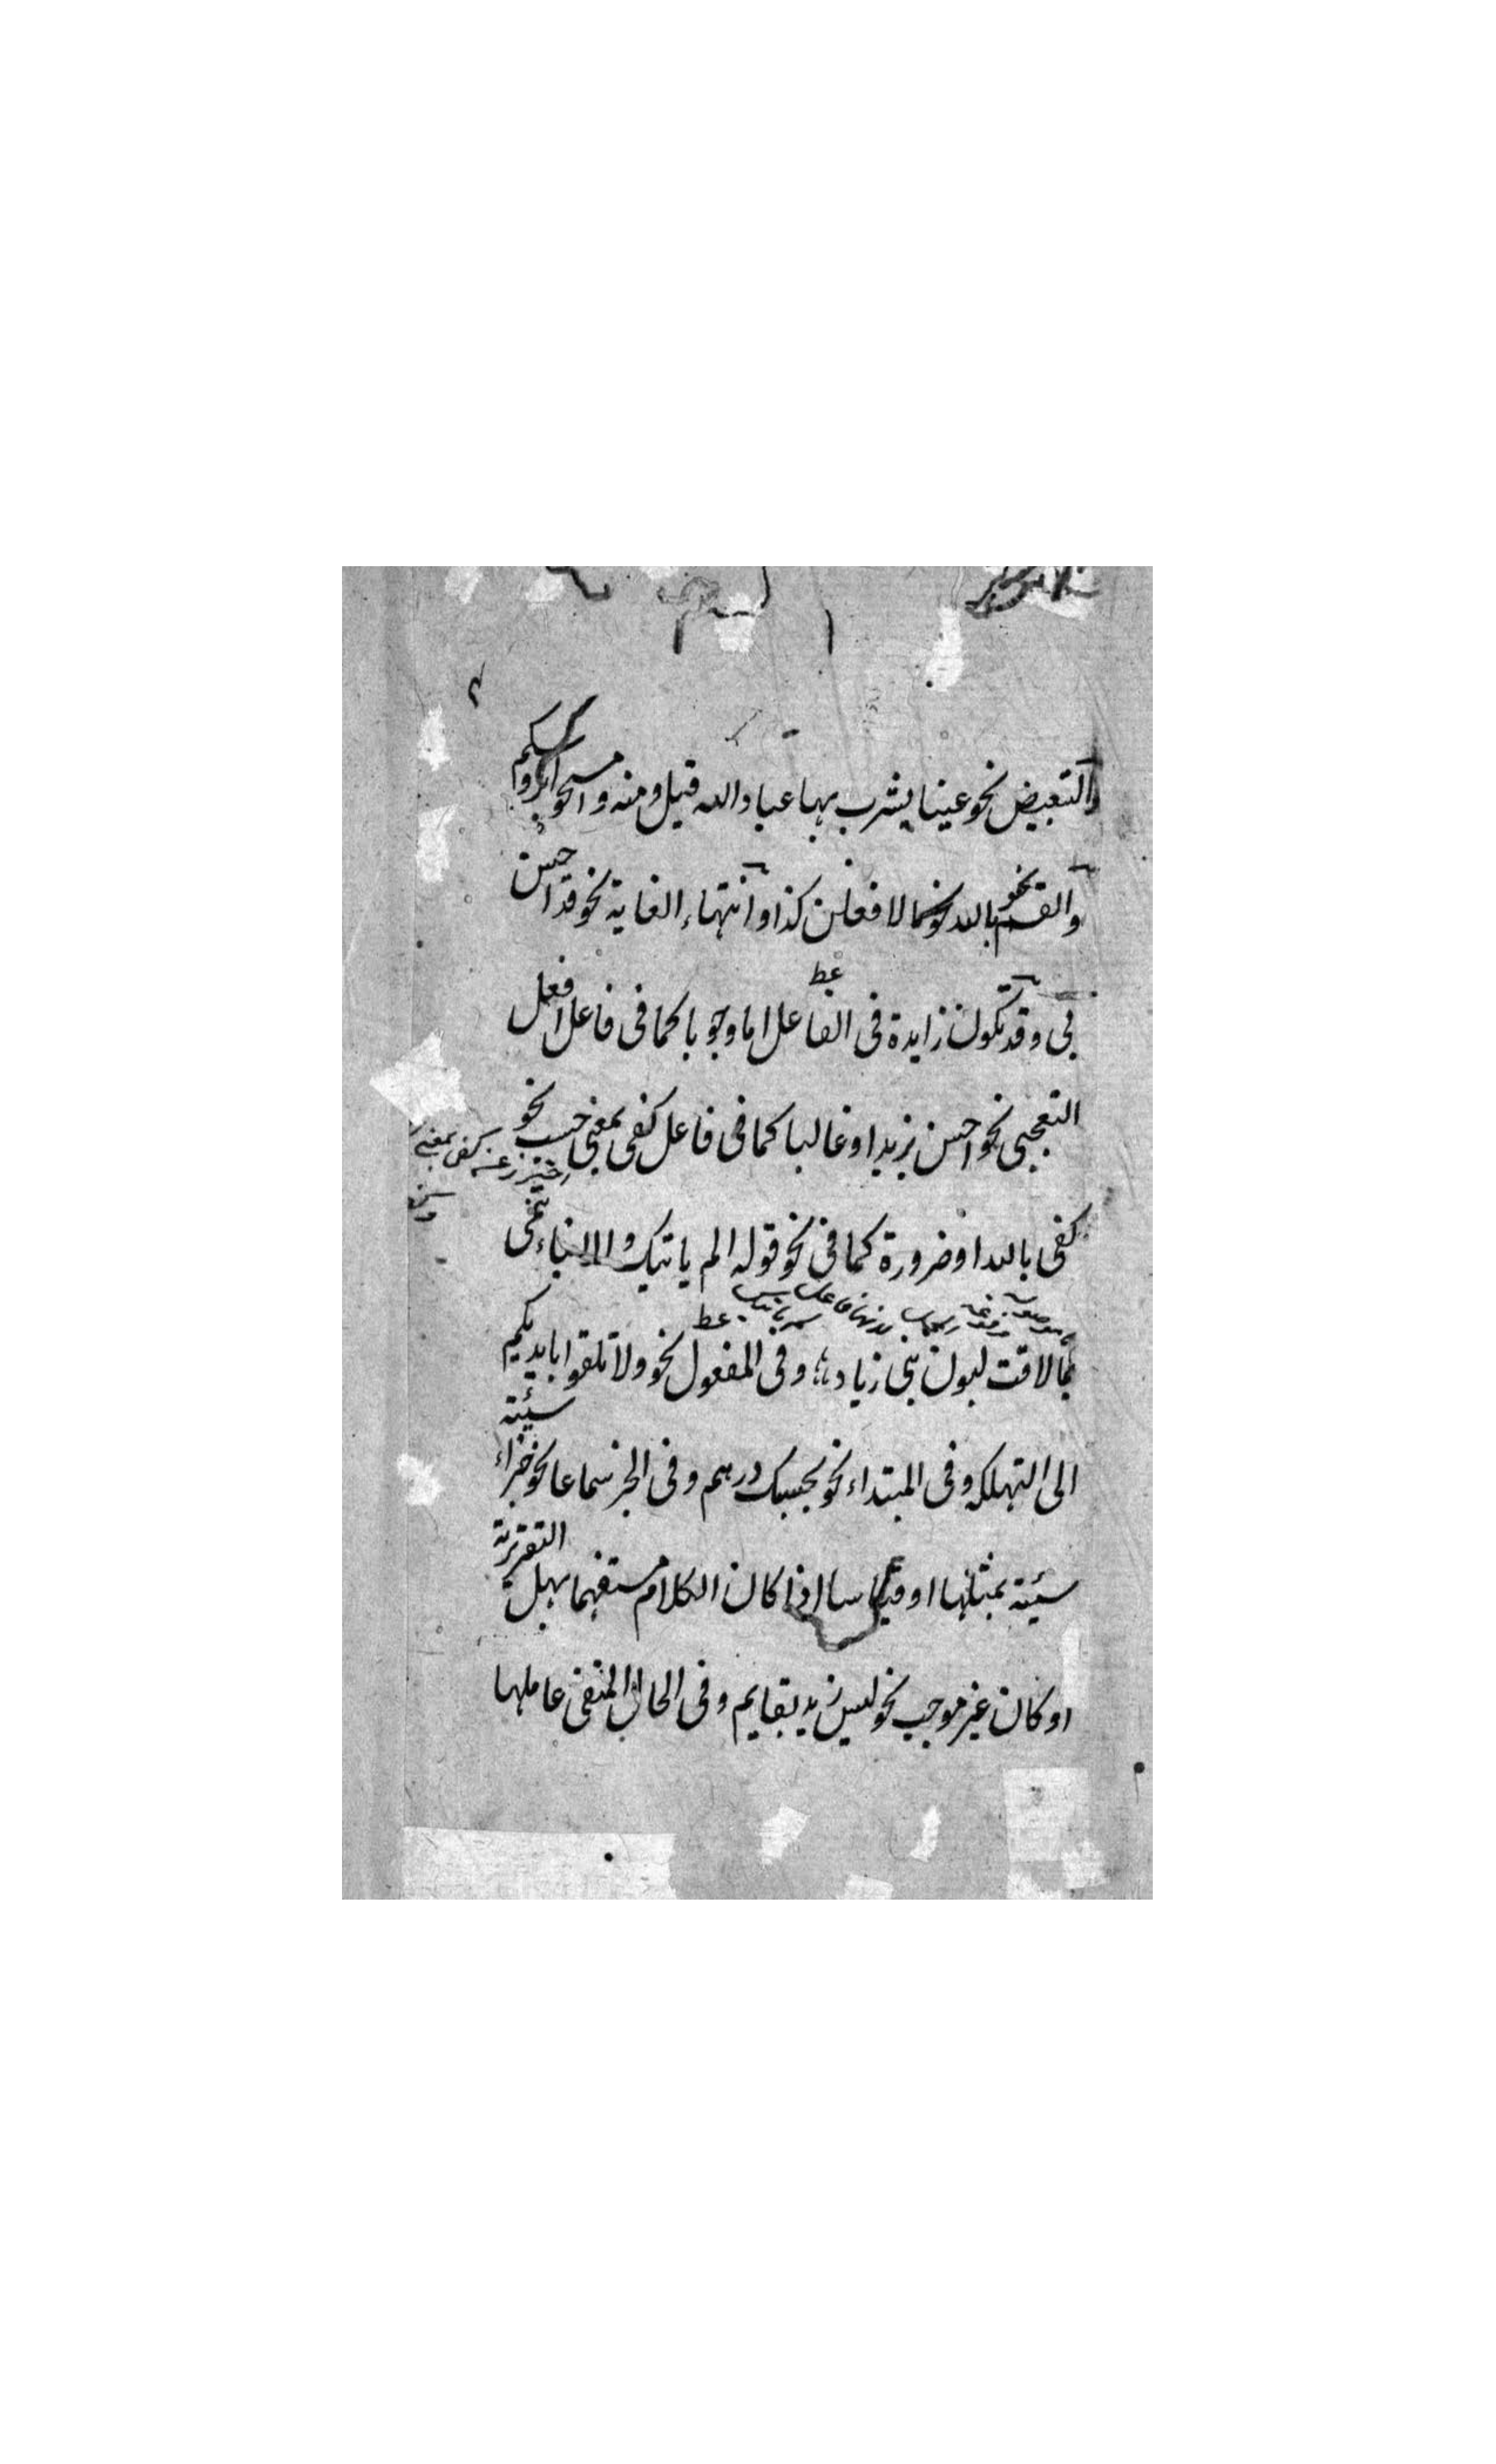 والتبعيض نحو عينا يشرب بها عباد الله قيل ومنه وامسحوا برؤسكم
والقسم نحو بالله لافعلن كذا وانتهاء الغاية نحو قد احسن
بي وقد تكون زايدة في الفاعل اما وجوبا كما في فاعل افعل
التعجبي نحو احسن بزيد او غالبا كما في فاعل كفى بمعنى حسب نحو
احترز عن كفى بمعنى
كفى بالله او ضرورة كما في نحو قوله الم ياتيك والانباء تنمى
بما لاقت لبون بني زياد وفي المفعول نحو ولا تلقوا بايديكم
الى التهلكه وفي المبتداء نحو بحسبك درهم وفي الخبر سماعا نحو جزاء سيئة
سيئة بمثلها او قياسا اذا كان الكلام مستفهما بهل التقريرية
او كان غير موجب نحو ليس زيد بقايم وفي الحال المنفى عاملها